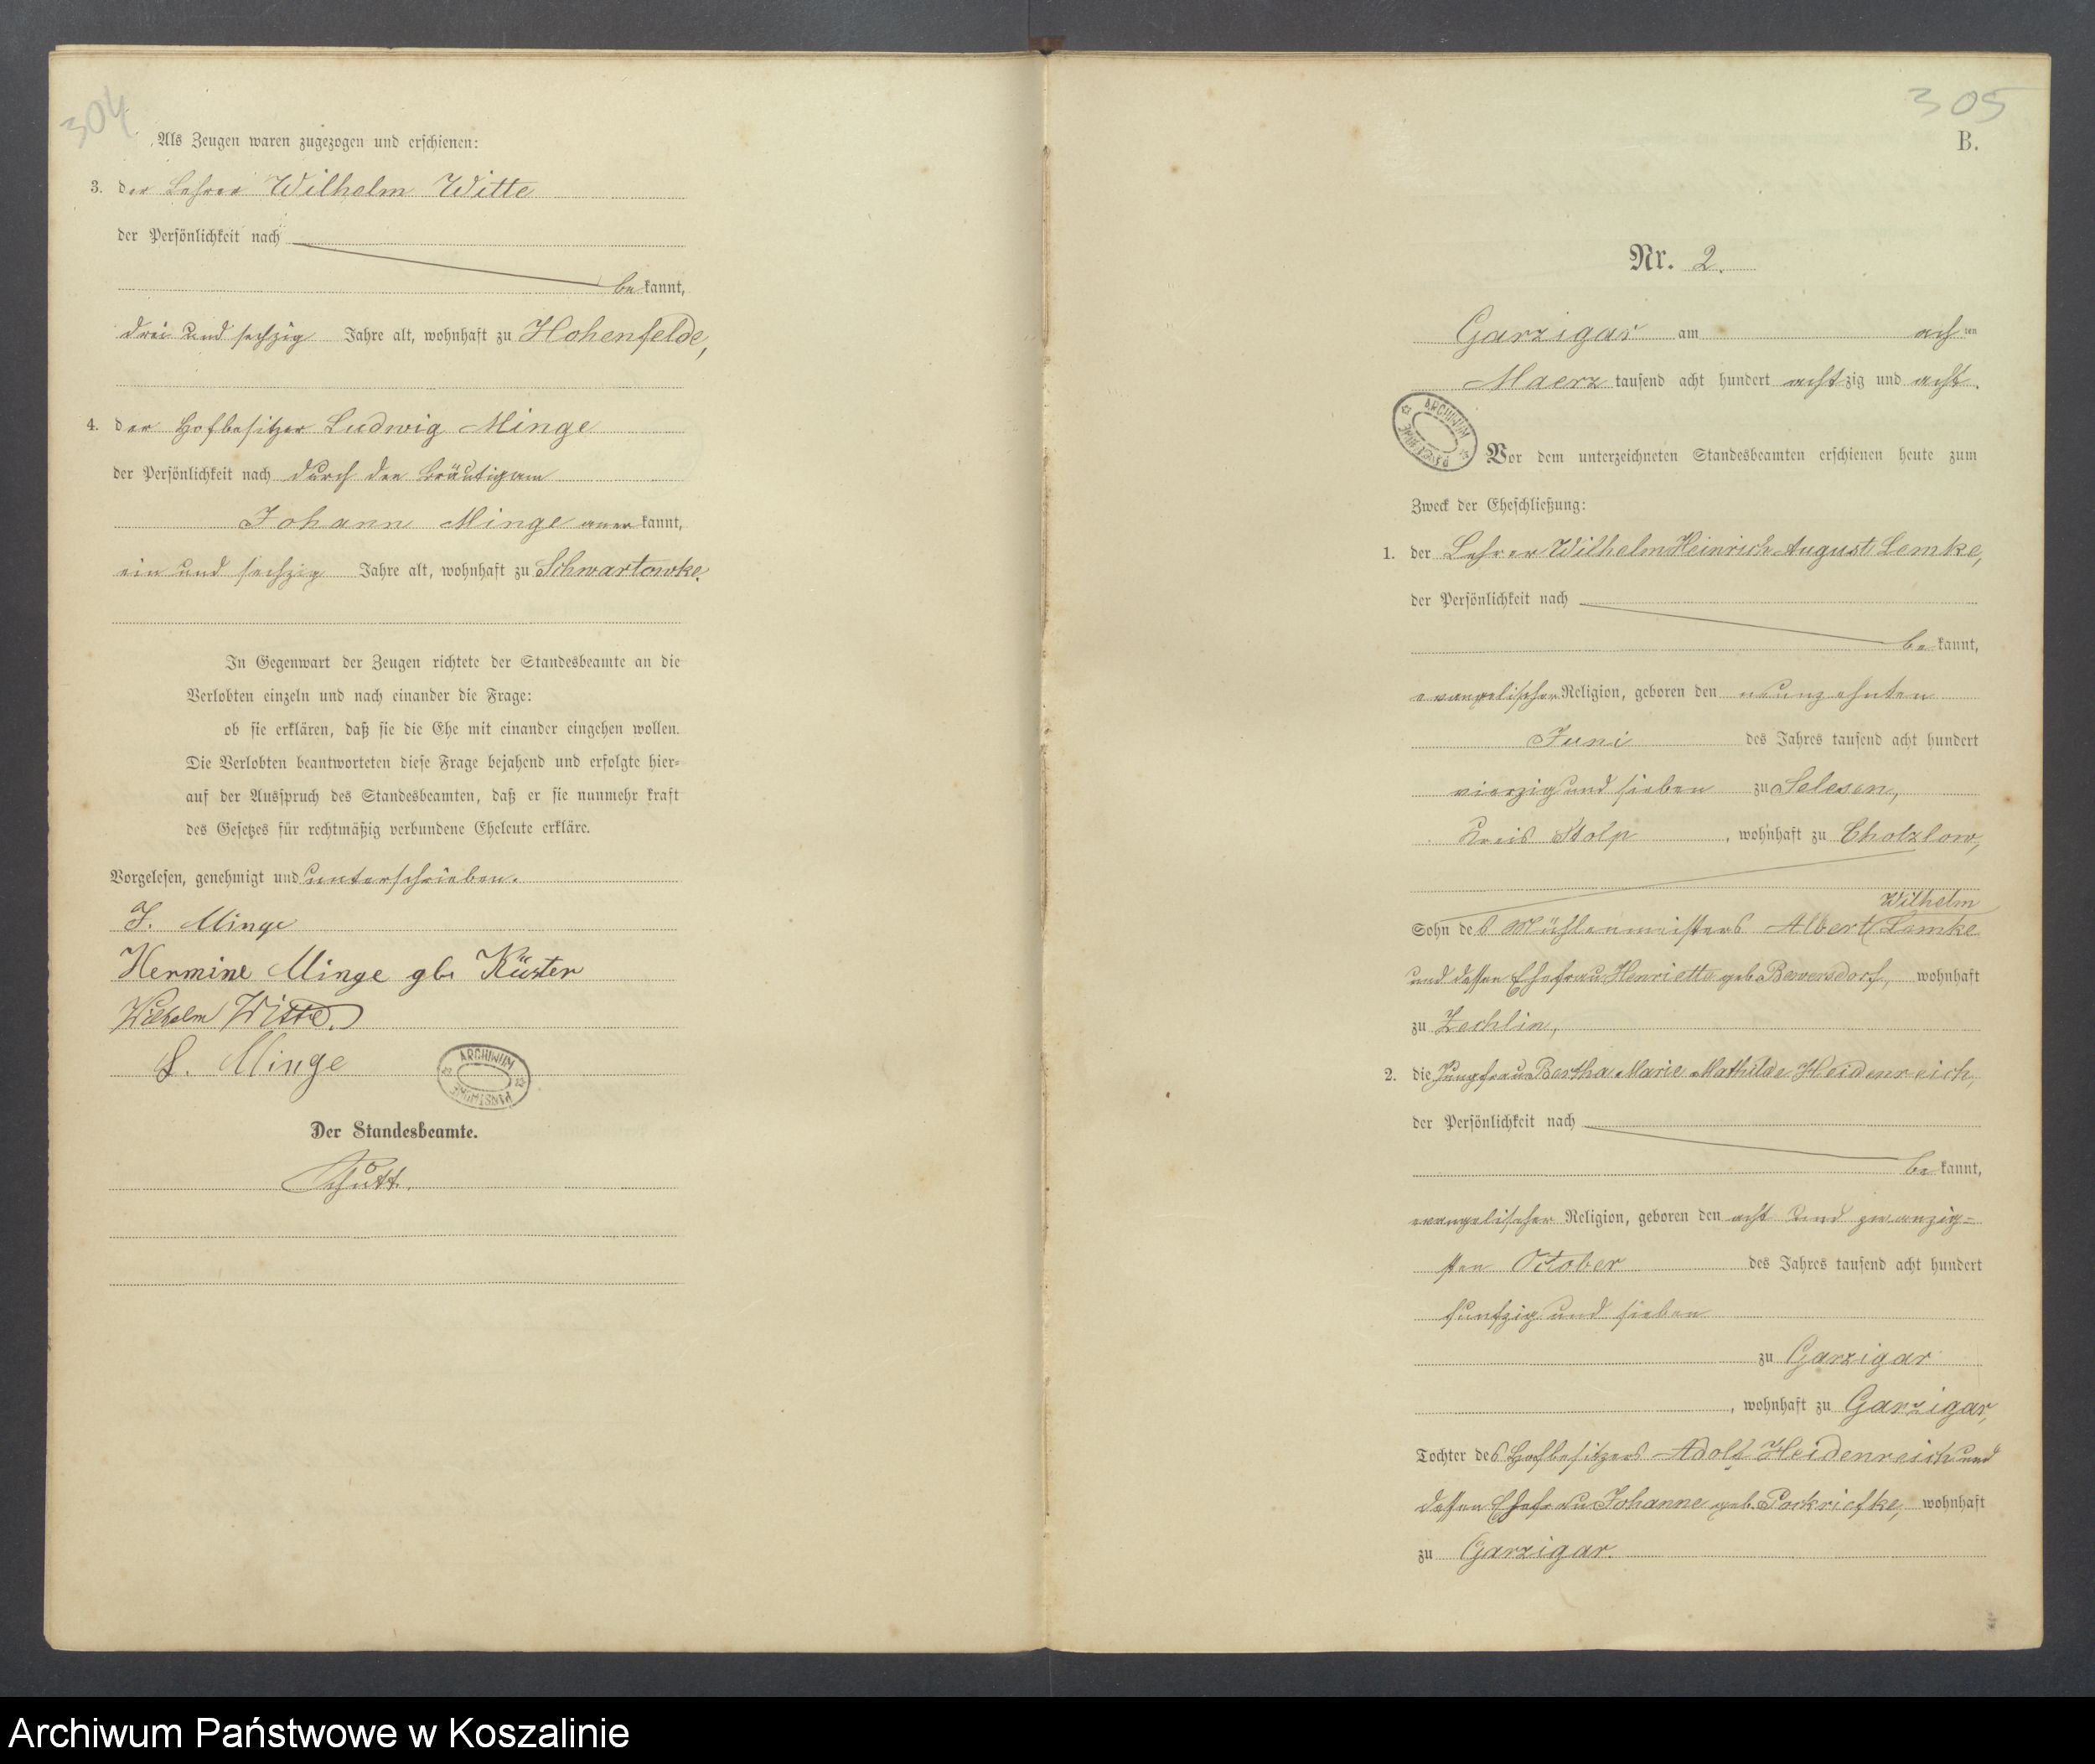 304
Als Zeugen waren zugezogen und erschienen:
3. der Lehrer Wilhelm Witte
der Persönlichkeit nach
bekannt,
drei und sechzig Jahre alt, wohnhaft zu Hohenfelde,
4. der Hofbesitzer Ludwig Minge
der Persönlichkeit nach durch den Bräutigam
Johann Minge anerkannt,
ein und sechzig Jahre alt, wohnhaft zu Schwartowke.
In Gegenwart der Zeugen richtete der Standesbeamte an die
Verlobten einzeln und nach einander die Frage:
ob sie erklären, daß sie die Ehe mit einander eingehen wollen.
Die Verlobten beantworteten diese Frage bejahend und erfolgte hier-
auf der Ausspruch des Standesbeamten, daß er sie nunmehr kraft
des Gesetzes für rechtmäßig verbundene Eheleute erkläre.
Vorgelesen, genehmigt und unterschrieben.
J. Minge
Hermine Minge gb. Küster
Wilhelm Witte.
L. Minge
ARCHIWUM PAŃSTWOWE
Der Standesbeamte.
305
B.
Nr. 2.
Garzigar am achten
Maerz tausend acht hundert achtzig und acht.
ARCHIWUM PAŃSTWOWE
Vor dem unterzeichneten Standesbeamten erschienen heute zum
Zweck der Eheschließung:
1. der Lehrer Wilhelm Heinrich August Lemke,
der Persönlichkeit nach
bekannt,
evangelischer Religion, geboren den neunzehnten
Juni des Jahres tausend acht hundert
vierzig und sieben zu Selesen,
Kreis Stolp, wohnhaft zu Chotzlow,
Wilhelm
Sohn des Mühlenmeisters Albert Lemke
und dessen Ehefrau Henriette geb. Bewersdorf, wohnhaft
zu Zechlin,
2. die Jungfrau Bertha Marie Mathilde Heidenreich,
der Persönlichkeit nach
bekannt,
evangelischer Religion, geboren den acht und zwanzig-
sten October des Jahres tausend acht hundert
funfzig und sieben
zu Garzigar
, wohnhaft zu Garzigar,
Tochter des Hofbesitzers Adolf Heidenreich und
dessen Ehefrau Johanne geb. Pockriefke, wohnhaft
zu Garzigar.
Archiwum Państwowe w Koszalinie